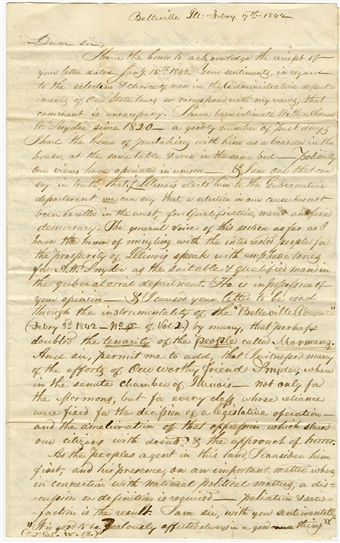 Belleville Ill: Febry 17th 1842
Dear sir,
I have the honor to acknowledge the receipt of
your letter dated Jany 15th 1842. Your sentiments, in regard
to the selection & choice of men in the administrative depart-
ments of Our State laws so correspond with my views, that
comment is unnecessary. I have been intimate with Adam
W. Snyder since 1830 — a goodly number of past days
I had the honor of partaking with him as a boarder in the
house, at the same table & even in the same bed — politically
our views have operated in unison — & I am one that can
say in truth, that if Illinois elects him to the Gubernative
department we can say, that a selection in our cause has not
been besetled in the west, for qualification, merit and pure
democracy. The general voice of this section as far as I
have the honor of mingling with the interested people for the
prosperity of Illinois speak with emphatic tones
for A. W. Snyder as the suitable & qualified man in
the gubernatorial department. He is in possession of
your opinion — & I caused your letter to be read
through the instrumentality of the "Belleville Advocate"
(Febry 3d 1842 — No 45 of Vol 2.) by many, that perhaps
doubted the tenacity of the people called Mormons.
And sir, permit me to add, that I witnessed many
of the efforts of Our worthy friend Snyder, when
in the senate chamber of Illinois — not only for
the Mormons, but for every class, whose reliance
were fixed for the decision of a legislative operation —
and the amelioration of that oppression which
our citizens with doubt, & the approach of horror.
As the peoples agent in this land, I consider him
first, and his presence, on an important matter when
in connection with national political matters, a dis-
cussion or definition is required — palliation & satis-
faction is the result. I am sir, with you sentimentally
"It is good to be zealously affected always in a good thing"